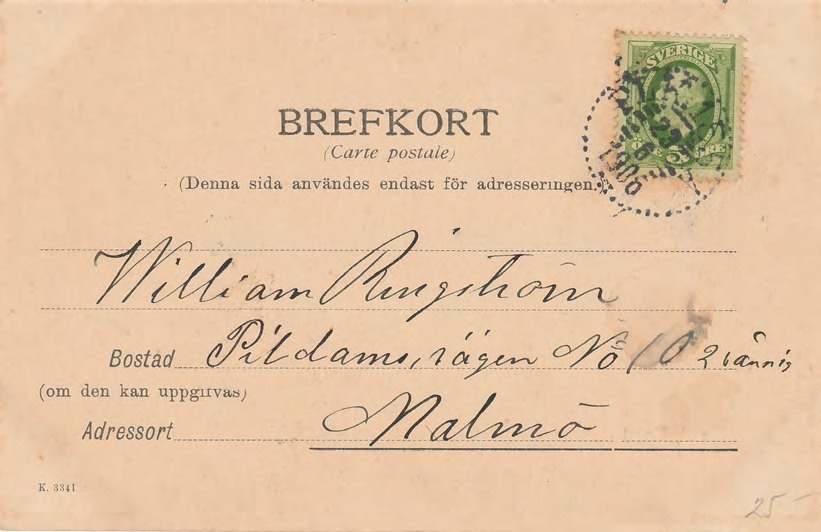 SVERIGE
5
BREFKORT
(Carte postale)
(Denna sida användes endast för adresseringen.)
William Ringström
Bostad Pildamsvägen No 10 2 vånnig
(om den kan uppgifvas)
Adressort Malmö
K. 3341
25-